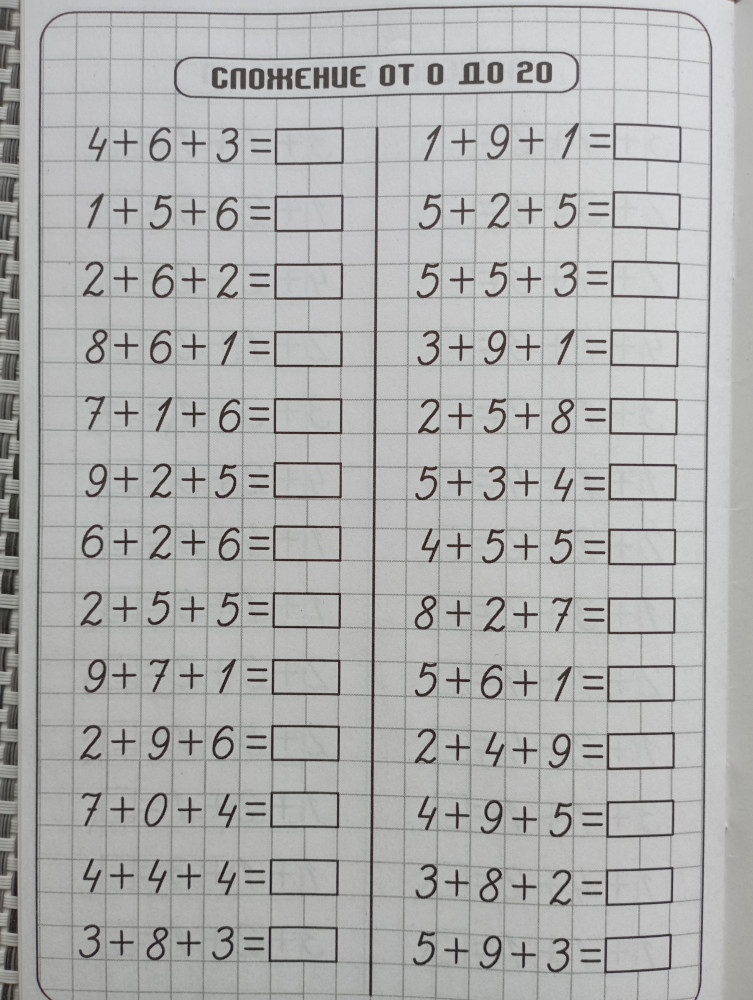 СЛОЖЕНИЕ ОТ 0 ДО 20
4+6+3=
1+5+6=
2+6+2=
8+6+1=
7+1+6=
9+2+5=
6+2+6=
2+5+5=
9+7+1=
2+9+6=
7+0+4=
4+4+4=
3+8+3=
1+9+1=
5+2+5=
5+5+3=
3+9+1=
2+5+8=
5+3+4=
4+5+5=
8+2+7=
5+6+1=
2+4+9=
4+9+5=
3+8+2=
5+9+3=